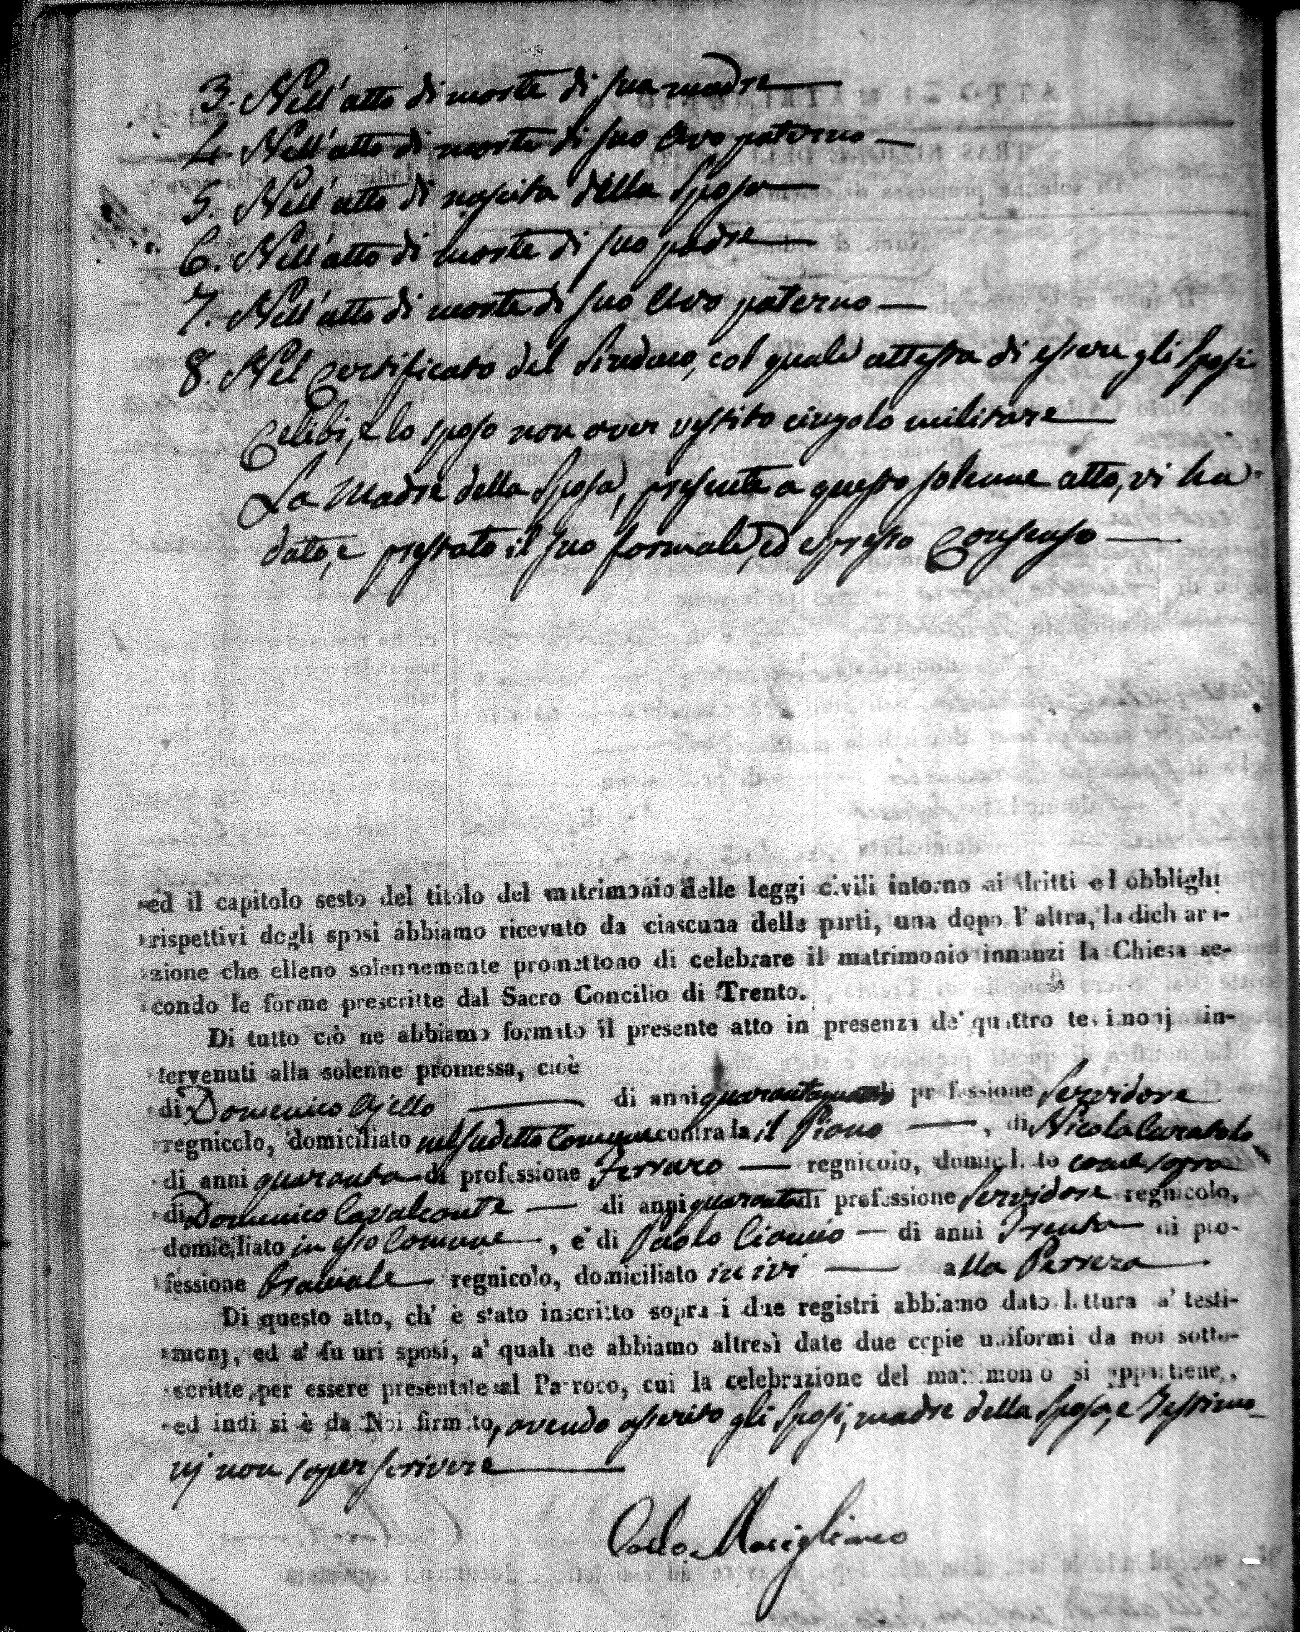 3. Nell'atto di morte di sua madre
4. Nell'atto di morte di suo Avo paterno
5. Nell'atto di nascita della Sposa
6. Nell'atto di morte di suo padre
7. Nell'atto di morte di suo Avo paterno
8. Nel Certificato del Sindaco, col quale attesta di essere gli Sposi
Celibi, e lo sposo non aver vestito cingolo militare
La Madre della Sposa, presente a questo solenne atto, vi ha
dato, e prestato il suo formale, ed espresso Consenso
ed il capitolo sesto del titolo del matrimonio delle leggi civili intorno ai dritti ed obblighi
rispettivi degli sposi abbiamo ricevuto da ciascuna delle parti, una dopo l'altra, la dichiara-
zione che elleno solennemente promettono di celebrare il matrimonio innanzi la Chiesa se-
condo le forme prescritte dal Sacro Concilio di Trento.
Di tutto ciò ne abbiamo formato il presente atto in presenza de' quattro testimonj in-
tervenuti alla solenne promessa, cioè
di Domenico Ajello di anni di professione Servidore
regnicolo, domiciliato nel sudetto Comune contrada il Piano, di Nicola Curatolo
di anni quaranta di professione Ferraro regnicolo, domiciliato come sopra
di Domenico Cavalcante di anni quaranta di professione Servidore regnicolo,
domiciliato in esso Comune, e di Paolo Ciancio di anni Trenta di pro-
fessione Bracciale regnicolo, domiciliato in ivi alla
Di questo atto, ch' è stato inscritto sopra i due registri abbiamo dato lettura a' testi-
monj, ed a' futuri sposi, a' quali ne abbiamo altresì date due copie uniformi da noi sotto-
scritte per essere presentate al Parroco, cui la celebrazione del matrimonio si appartiene,
ed indi si è da Noi firmato, avendo asserito gli Sposi, madre della Sposa, e Testimo-
nj non saper scrivere
Carlo Marigliano